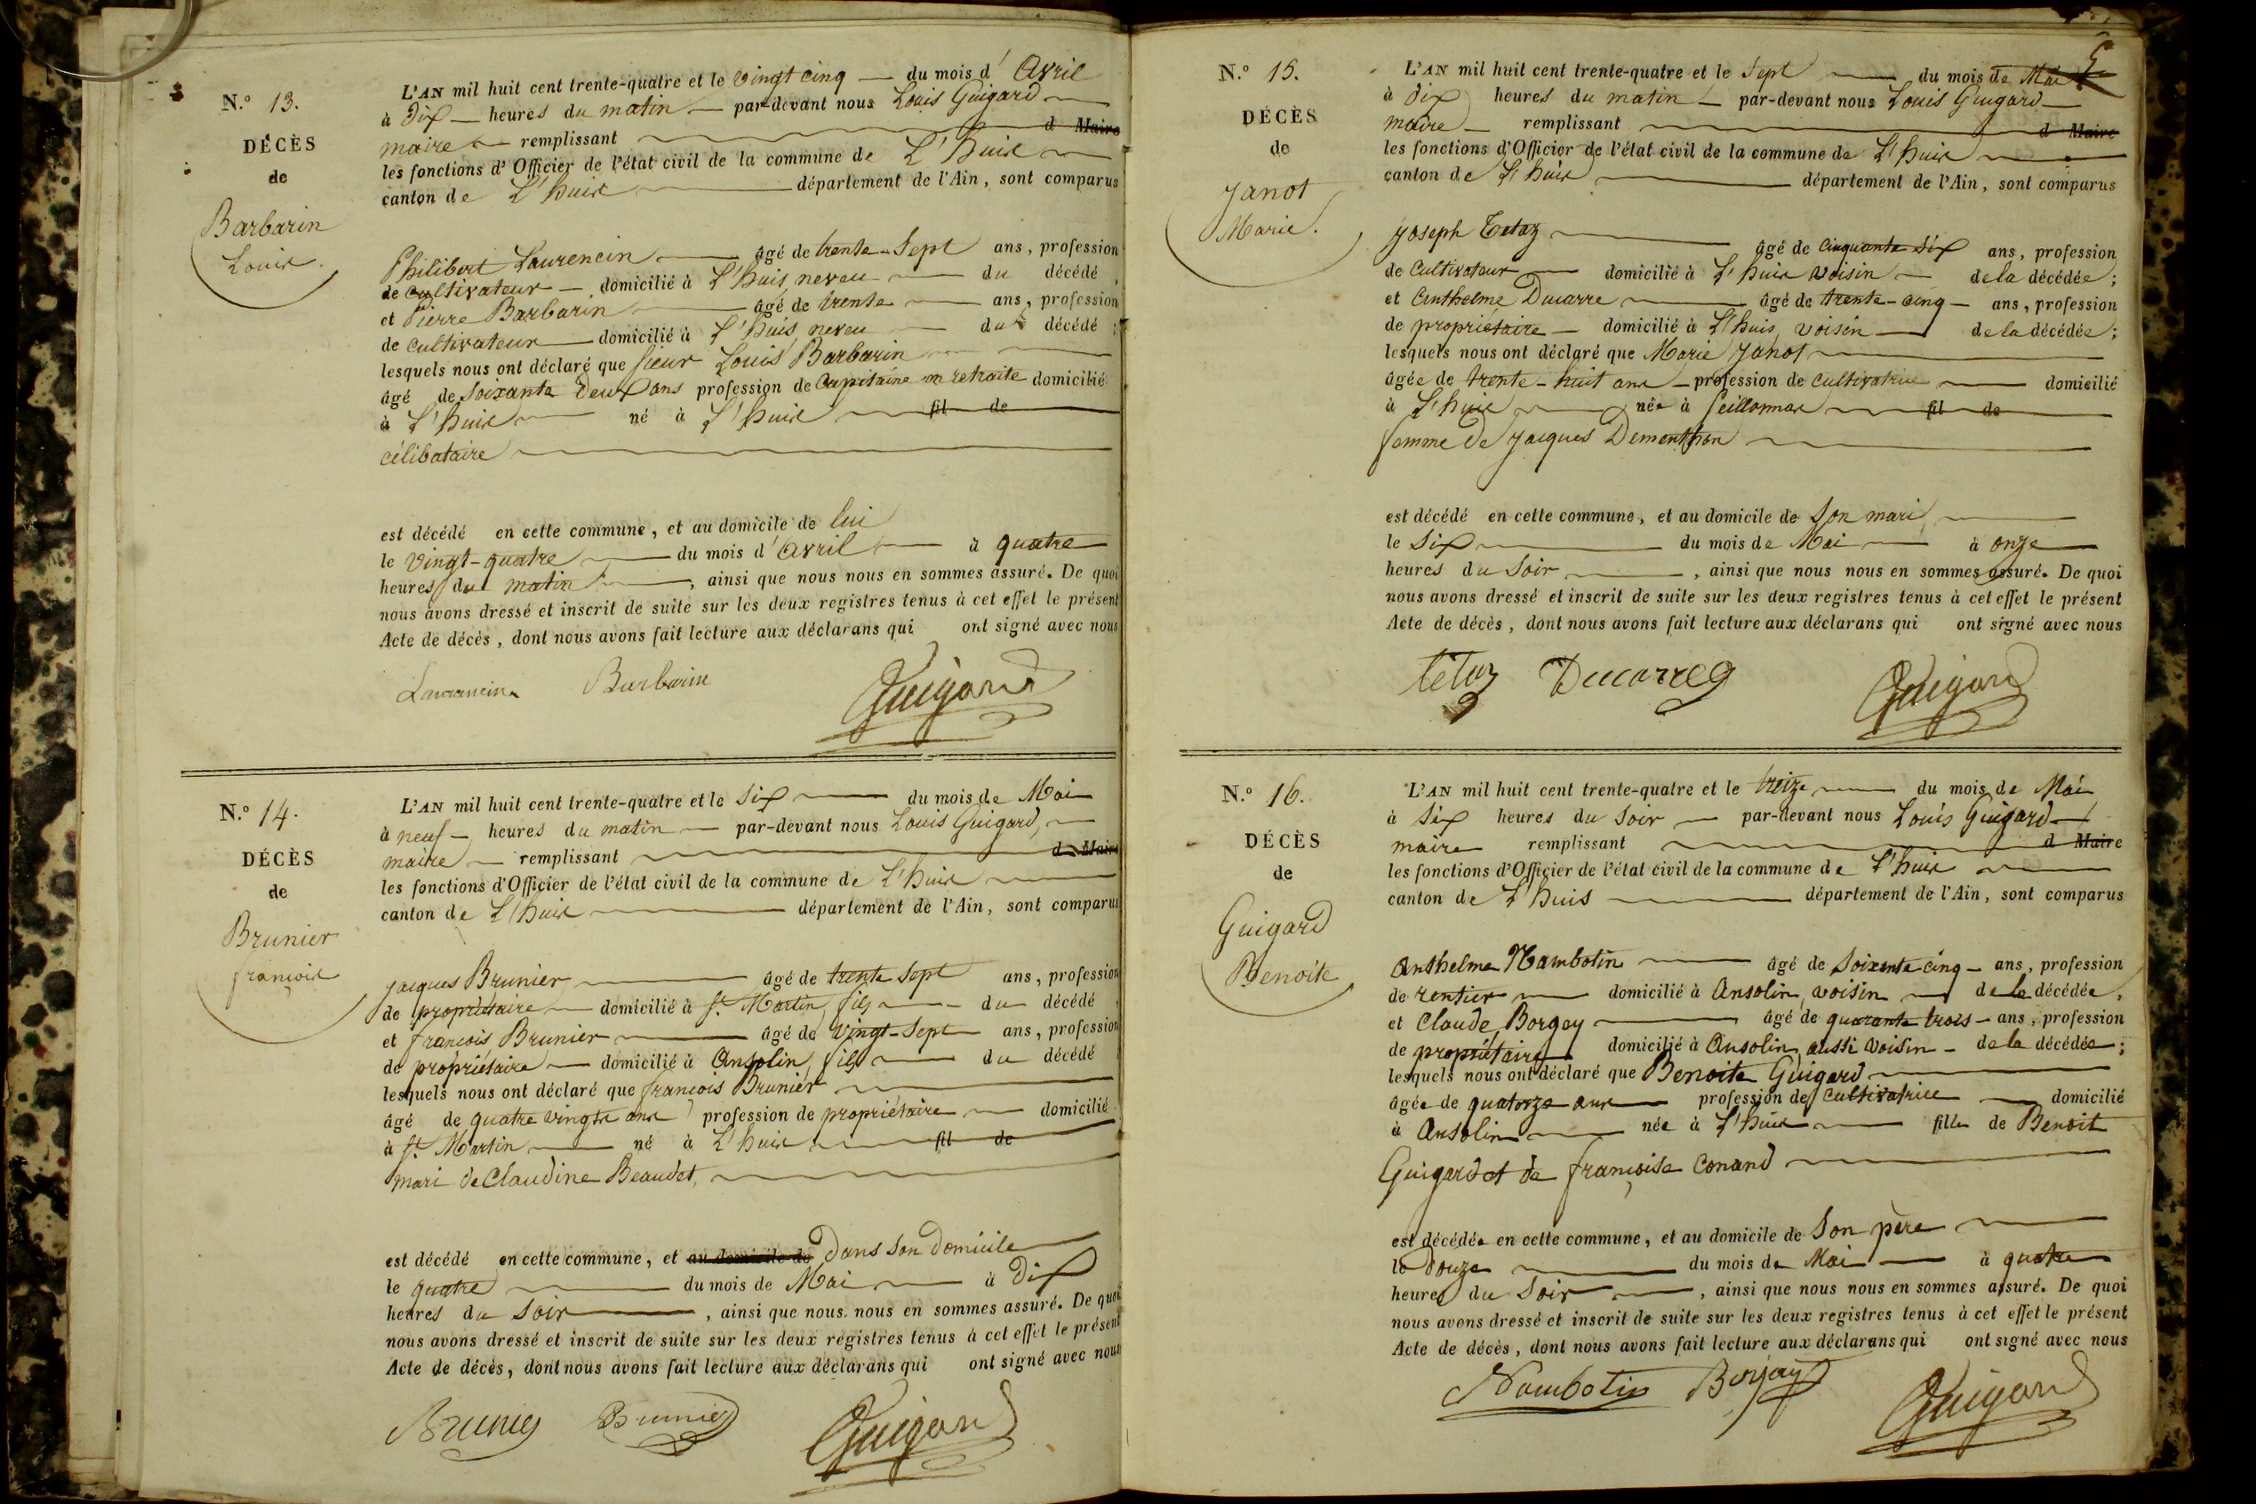 N.º 13.
DÉCÈS
de
Barbarin
Louis.
L'AN mil huit cent trente-quatre et le vingt cinq du mois d'Avril
à dix heures du matin par-devant nous Louis Guigard
maire remplissant d Maire
les fonctions d'Officier de l'état civil de la commune de L'huis
canton de L'huis département de l'Ain, sont comparus
Philibert Laurencin âgé de trente-sept ans, profession
de cultivateur domicilié à L'huis, neveu du décédé
et Pierre Barbarin âgé de trente ans, profession
de cultivateur domicilié à L'huis, neveu du décédé ;
lesquels nous ont déclaré que sieur Louis Barbarin
âgé de soixante deux ans profession de Capitaine en retraite domicilié
à L'huis né à L'huis fil de
célibataire
est décédé en cette commune, et au domicile de lui
le vingt-quatre du mois d'avril à quatre
heures du matin, ainsi que nous nous en sommes assuré. De quoi
nous avons dressé et inscrit de suite sur les deux registres tenus à cet effet le présent
Acte de décès, dont nous avons fait lecture aux déclarans qui ont signé avec nous
Laurencin Barbarin Guigard
N.º 14.
DÉCÈS
de
Brunier
françois
L'AN mil huit cent trente-quatre et le six du mois de Mai
à neuf heures du matin par-devant nous Louis Guigard,
maire remplissant d Maire
les fonctions d'Officier de l'état civil de la commune de L'huis
canton de L'huis département de l'Ain, sont comparus
jacques Brunier âgé de trente sept ans, profession
de propriétaire domicilié à St. Martin, fils du décédé
et francois Brunier âgé de vingt-sept ans, profession
de propriétaire domicilié à Ansolin, fils du décédé
lesquels nous ont déclaré que francois Brunier
âgé de quatre vingts ans profession de propriétaire domicilié
à St. Martin né à L'huis fil de
mari de Claudine Beaudet,
est décédé en cette commune, et au domicile de dans son domicile
le quatre du mois de Mai à dix
heures du soir, ainsi que nous nous en sommes assuré. De quoi
nous avons dressé et inscrit de suite sur les deux registres tenus à cet effet le présent
Acte de décès, dont nous avons fait lecture aux déclarans qui ont signé avec nous
Brunier Brunier Guigard
5
N.º 15.
DÉCÈS
de
Janot
Marie.
L'AN mil huit cent trente-quatre et le sept du mois de Mai
à dix heures du matin par-devant nous Louis Guigard
maire remplissant d Maire
les fonctions d'Officier de l'état civil de la commune de L'huis
canton de L'huis département de l'Ain, sont comparus
Joseph Tetaz âgé de cinquante six ans, profession
de Cultivateur domicilié à L'huis voisin de la décédée ;
et Anthelme Ducarre âgé de trente-cinq ans, profession
de propriétaire domicilié à L'huis, voisin de la décédée ;
lesquels nous ont déclaré que Marie Janot
âgée de trente-huit ans profession de cultivatrice domicilié
à L'huis née à Seillonnas fil de
femme de Jacques Dementhon
est décédé en cette commune, et au domicile de son mari,
le six du mois de Mai à onze
heures du soir, ainsi que nous nous en sommes assuré. De quoi
nous avons dressé et inscrit de suite sur les deux registres tenus à cet effet le présent
Acte de décès, dont nous avons fait lecture aux déclarans qui ont signé avec nous
tetaz Ducarre Guigard
N.º 16.
DÉCÈS
de
Guigard
Benoite
L'AN mil huit cent trente-quatre et le treize du mois de Mai
à six heures du soir par-devant nous Louis Guigard
maire remplissant d Maire
les fonctions d'Officier de l'état civil de la commune de L'huis
canton de L'huis département de l'Ain, sont comparus
Anthelme Nambotin âgé de soixante cinq ans, profession
de rentier domicilié à Ansolin, voisin de la décédée,
et Claude Borgey âgé de quarante trois ans, profession
de propriétaire domicilié à Ansolin, aussi voisin de la décédée ;
lesquels nous ont déclaré que Benoite Guigard
âgée de quatorze ans profession de cultivatrice domicilié
à Ansolin née à L'huis fille de Benoit
Guigard et de françoise Conand
est décédée en cette commune, et au domicile de son père
le douze du mois de Mai à quatre
heures du soir, ainsi que nous nous en sommes assuré. De quoi
nous avons dressé et inscrit de suite sur les deux registres tenus à cet effet le présent
Acte de décès, dont nous avons fait lecture aux déclarans qui ont signé avec nous
Nambotin Borjay Guigard